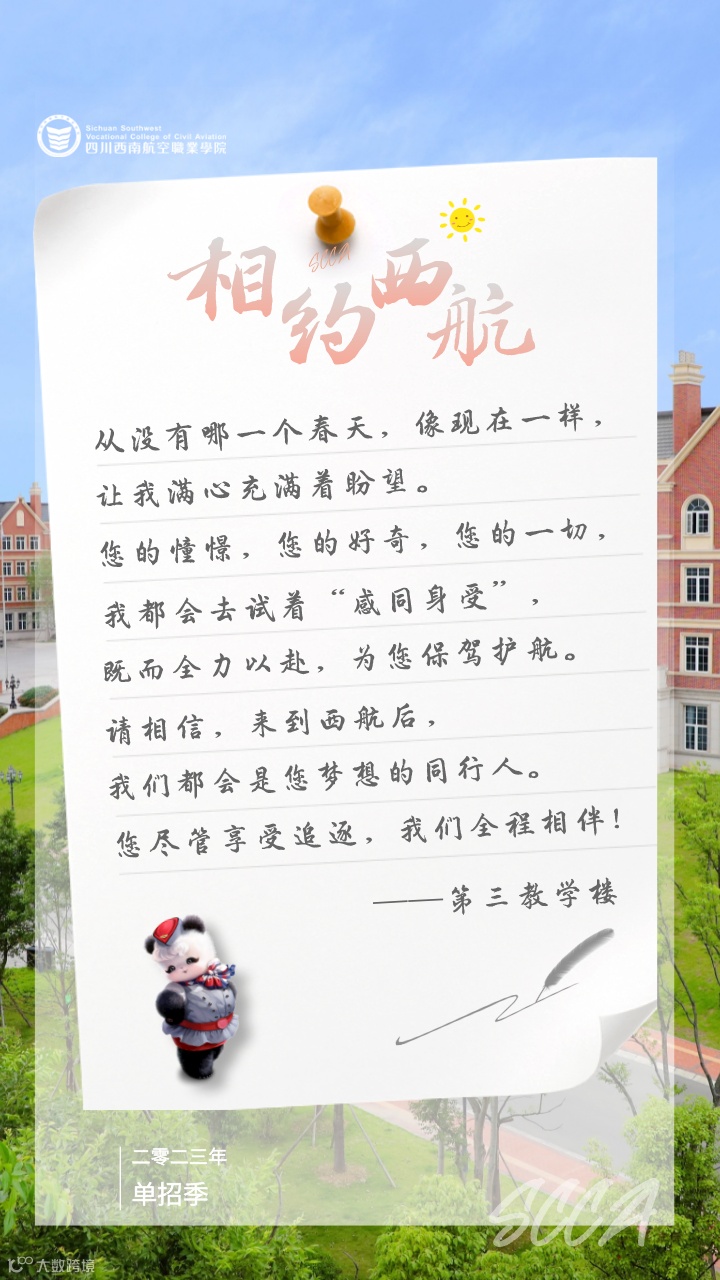 Sichuan Southwest
Vocational College of Civil Aviation
四川西南航空職業學院
相约西航
SCCA
从没有哪一个春天，像现在一样，
让我满心充满着盼望。
您的憧憬，您的好奇，您的一切，
我都会去试着“感同身受”，
既而全力以赴，为您保驾护航。
请相信，来到西航后，
我们都会是您梦想的同行人。
您尽管享受追逐，我们全程相伴！
——第三教学楼
二零二三年
单招季
SCCA
大数跨境